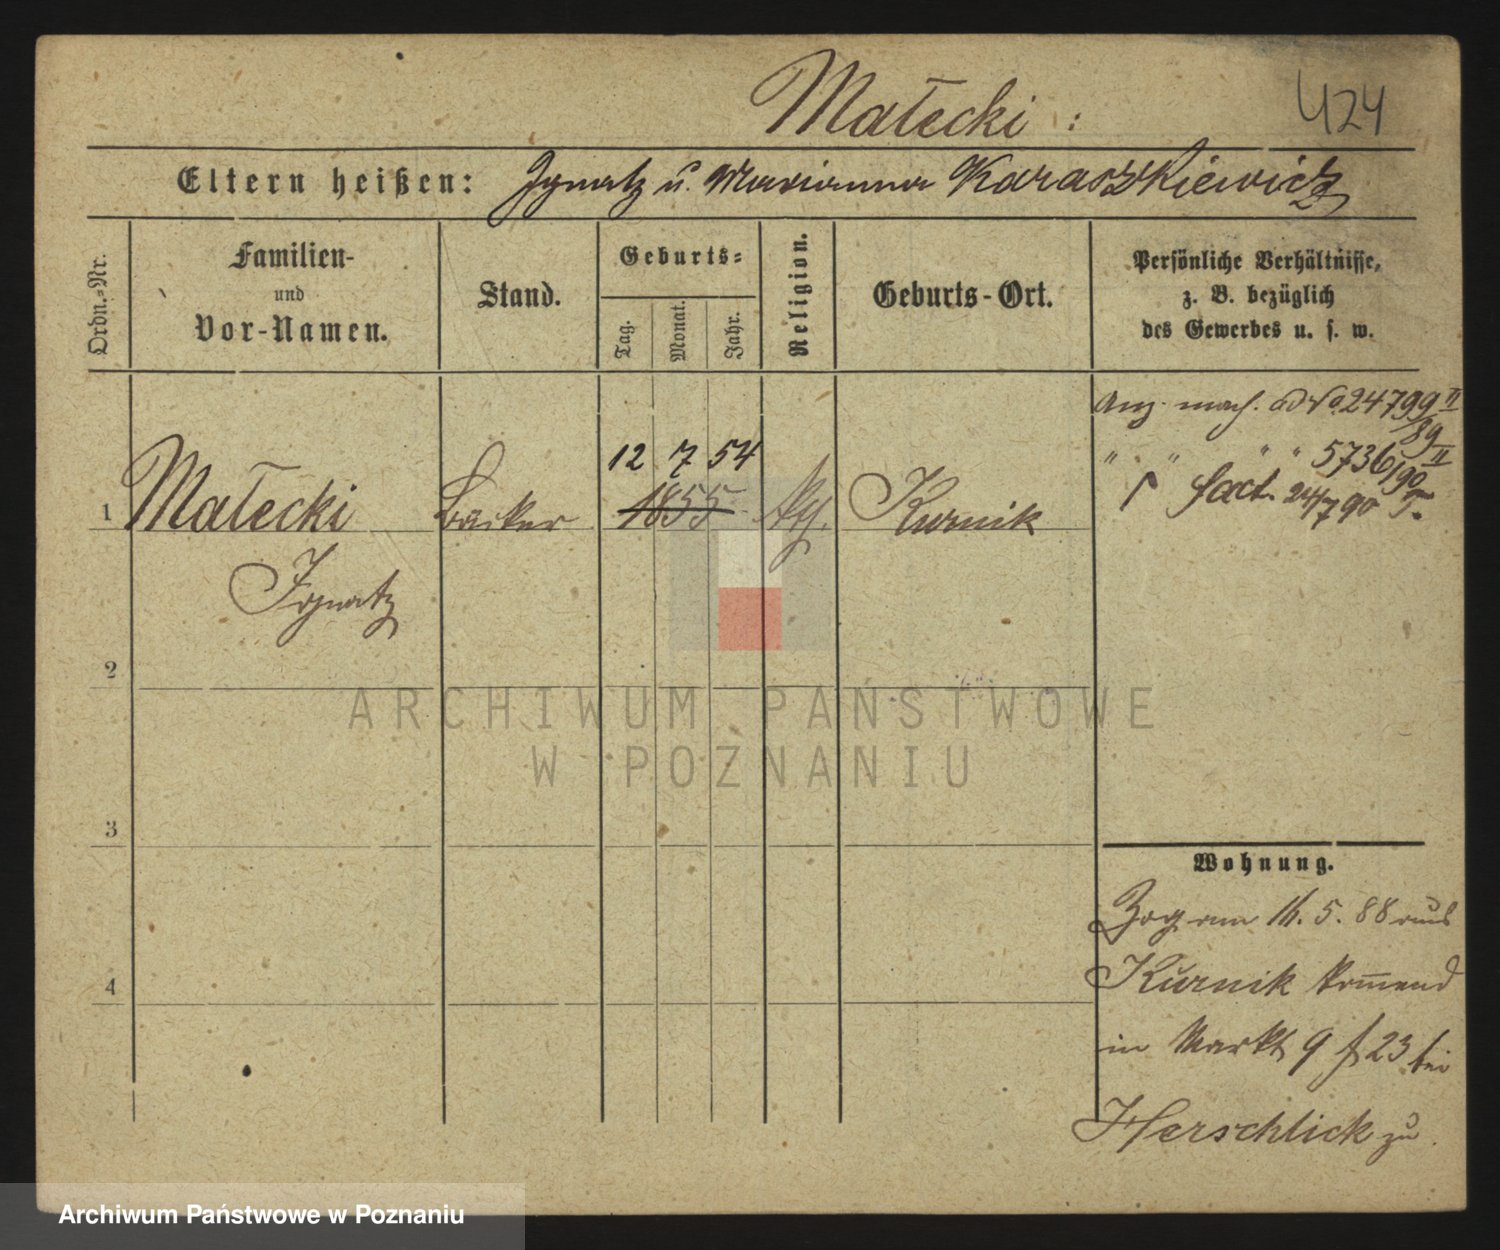 Małecki :
424
Eltern heißen: Ignatz u. Marianna Karaszkiewicz
Ordn.-Nr.
Familien-
und
Vor-Namen.
Stand.
Geburts-
Tag.
Monat.
Jahr.
Religion.
Geburts-Ort.
Persönliche Verhältnisse,
z. B. bezüglich
des Gewerbes u. s. w.
Anz. 24799 II
89
" " " 5736 II
90
24/7 90
12 7 54
1 Małecki Bäcker 1855 Kurnik
Ignatz
2
3
4
Wohnung.
Zog am 16. 5. 88 aus
Kurnik kommend
in Markt 9 23 bei
Herschlick zu.
ARCHIWUM PAŃSTWOWE
W POZNANIU
Archiwum Państwowe w Poznaniu